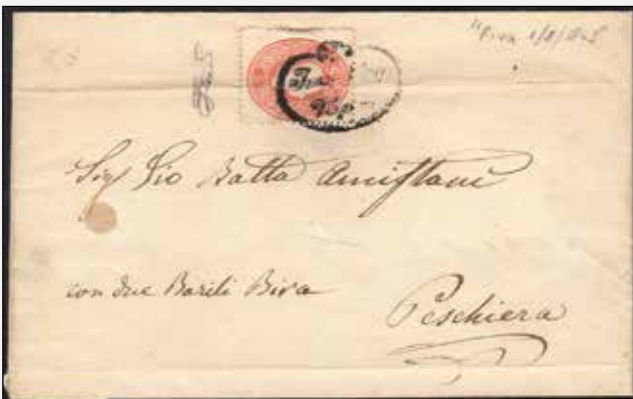 "Riva 1/8/1865
Sig Gio Batta Amistani
con due Barili Birra
Peschiera